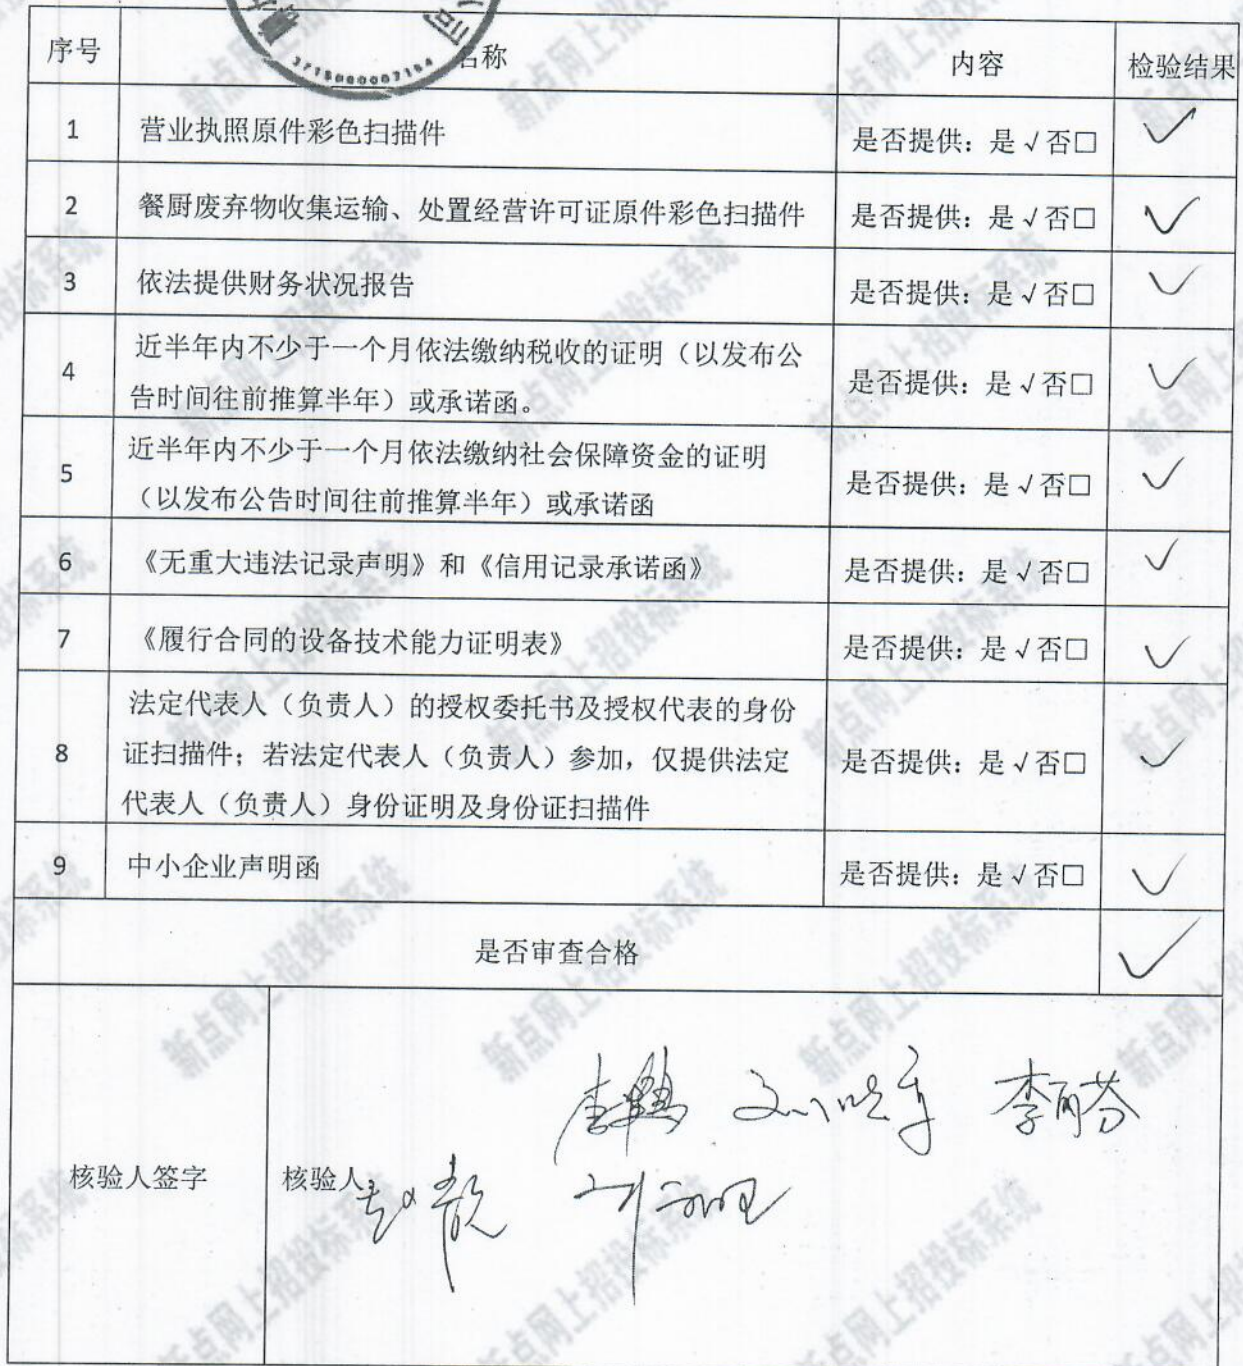 序号 名称 内容 检验结果
1 营业执照原件彩色扫描件 是否提供：是√否□ ✓
2 餐厨废弃物收集运输、处置经营许可证原件彩色扫描件 是否提供：是√否□ ✓
3 依法提供财务状况报告 是否提供：是√否□ ✓
4 近半年内不少于一个月依法缴纳税收的证明（以发布公
告时间往前推算半年）或承诺函。 是否提供：是√否□ ✓
5 近半年内不少于一个月依法缴纳社会保障资金的证明
（以发布公告时间往前推算半年）或承诺函 是否提供：是√否□ ✓
6 《无重大违法记录声明》和《信用记录承诺函》 是否提供：是√否□ ✓
7 《履行合同的设备技术能力证明表》 是否提供：是√否□ ✓
8 法定代表人（负责人）的授权委托书及授权代表的身份
证扫描件；若法定代表人（负责人）参加，仅提供法定
代表人（负责人）身份证明及身份证扫描件 是否提供：是√否□ ✓
9 中小企业声明函 是否提供：是√否□ ✓
是否审查合格 ✓
李丽芬
核验人签字 核验人
新点网上招投标系统